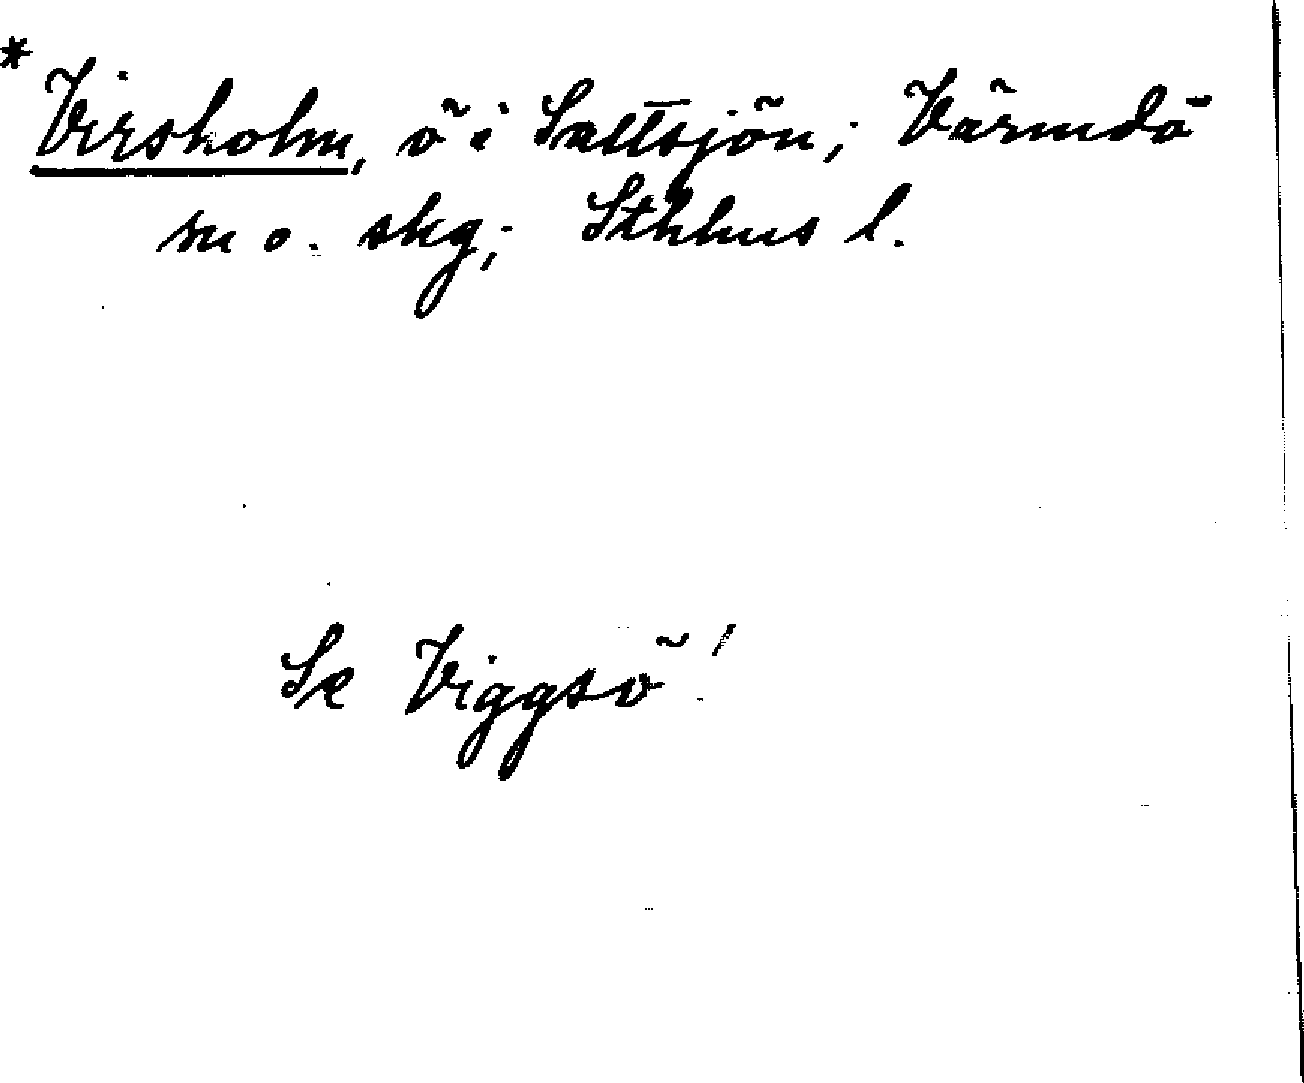 * Virsholm, ö i Saltsjön; Värmdö
sn o. skg; Sthlms l.
Se Viggsö!